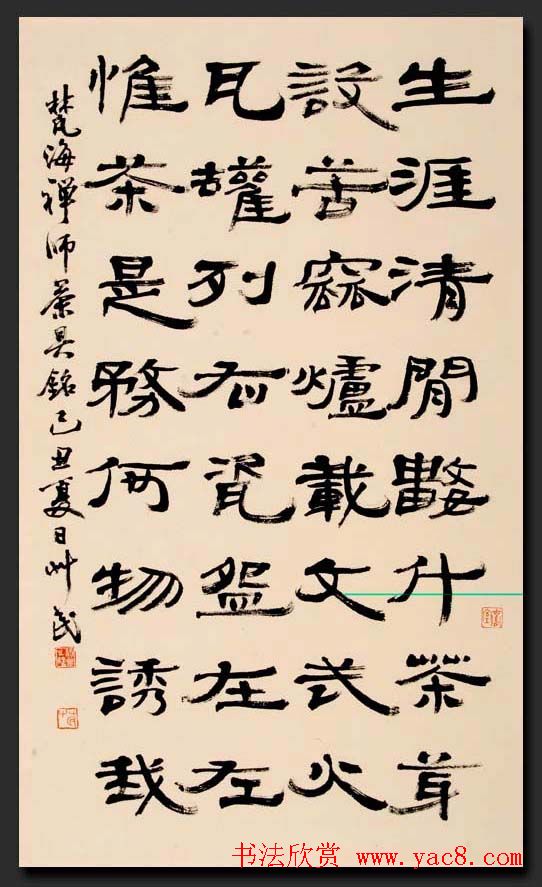 生涯清閒數什茶茸
設苦窳爐載文武火
瓦罐列右瓷盌在左
惟茶是務何物誘我
梵海禪师茶具銘己丑夏日艸民
书法欣赏 www.yac8.com